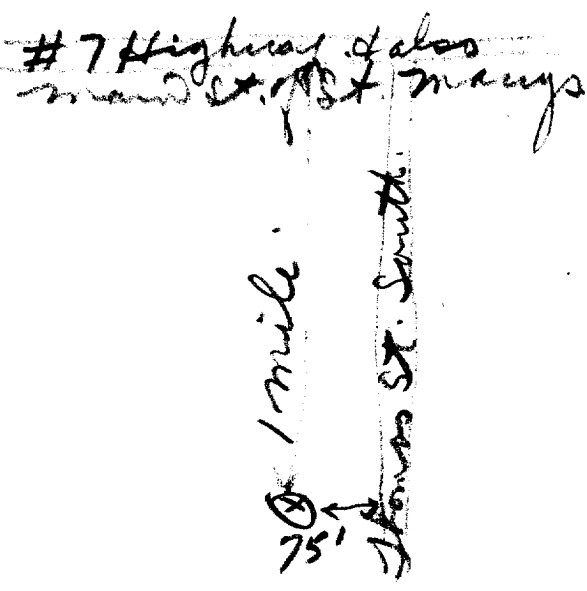 #7 Highway & also
Main St. of St. Marys
1 mile.
Thomas St. South.
75'